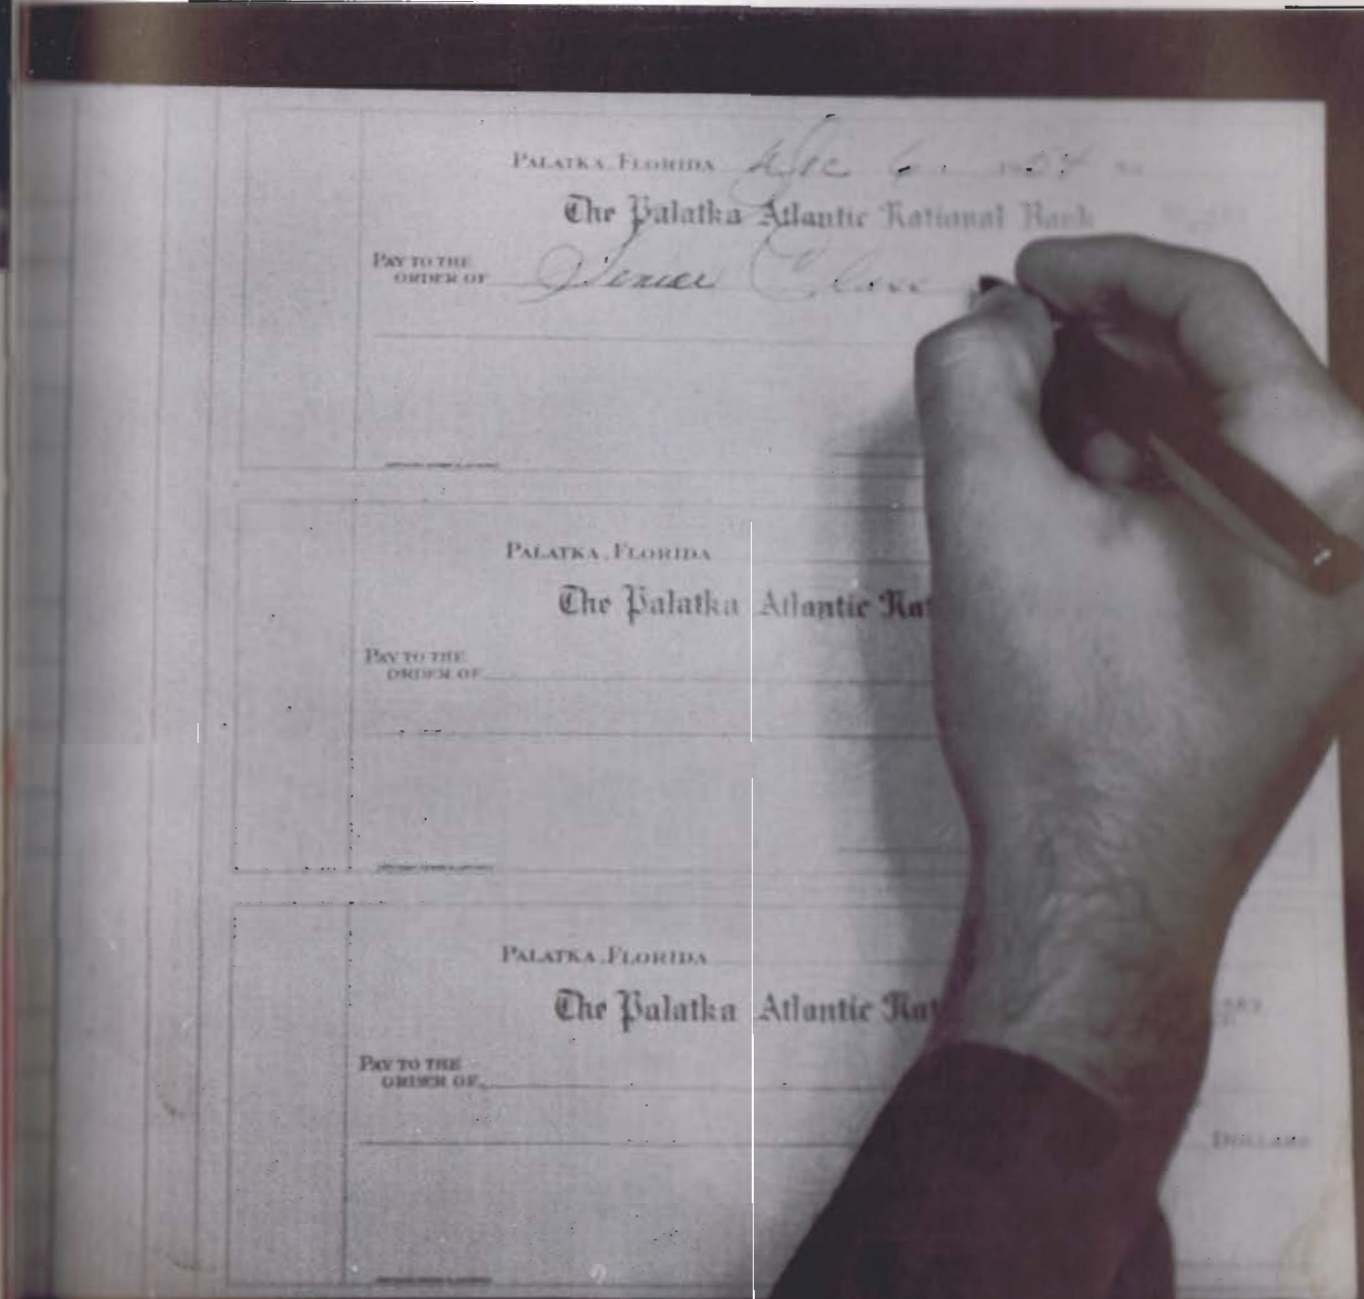 PALATKA, FLORIDA Dec 6, 1954 No.
The Palatka Atlantic National Bank
PAY TO THE
ORDER OF Senior Class
PALATKA, FLORIDA
The Palatka Atlantic Nat
PAY TO THE
ORDER OF
PALATKA, FLORIDA
The Palatka Atlantic Nat
PAY TO THE
ORDER OF
DOLLARS